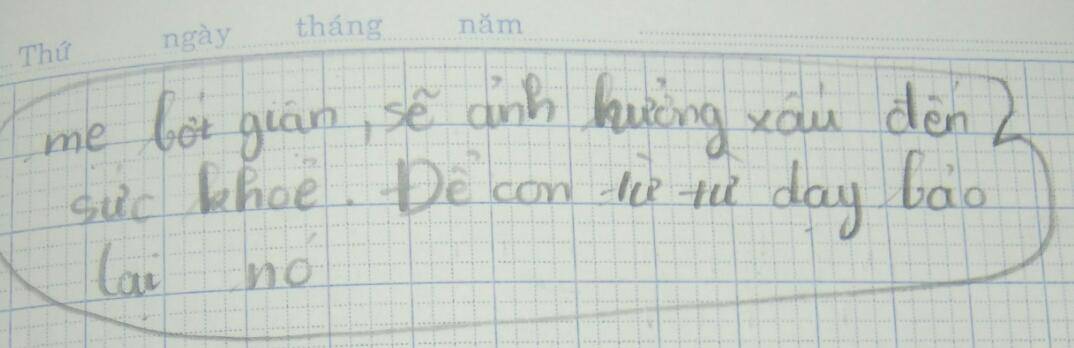 Thứ ngày tháng năm
mẹ bớt giận, sẽ ảnh hưởng xấu đến
sức khoẻ. Để con từ từ dạy bảo
lại nó